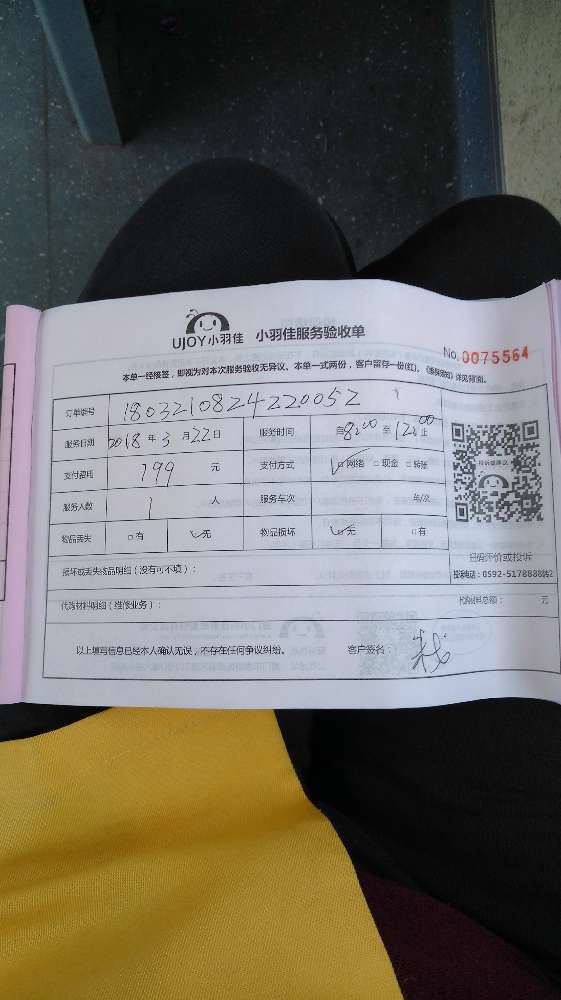 UJOY小羽佳 小羽佳服务验收单
No.0075564
本单一经接签，即视为对本次服务验收无异议、本单一式两份，客户留存一份(红)。《服务须知》详见背面。
订单编号 1803210824220052
服务日期 2018年3月22日 服务时间 自8:00至12:00止
支付费用 199元 支付方式 ☑网络 □现金 □转账
服务人数 1人 服务车次 车/次
物品丢失 □有 ☑无 物品损坏 ☑无 □有
扫码评价或投诉
投诉电话：0592-5178888转2
损坏或丢失物品明细（没有可不填）：
代购材料明细（维修业务）： 代购材单总额： 元
以上填写信息已经本人确认无误，不存在任何争议纠纷。 客户签名：